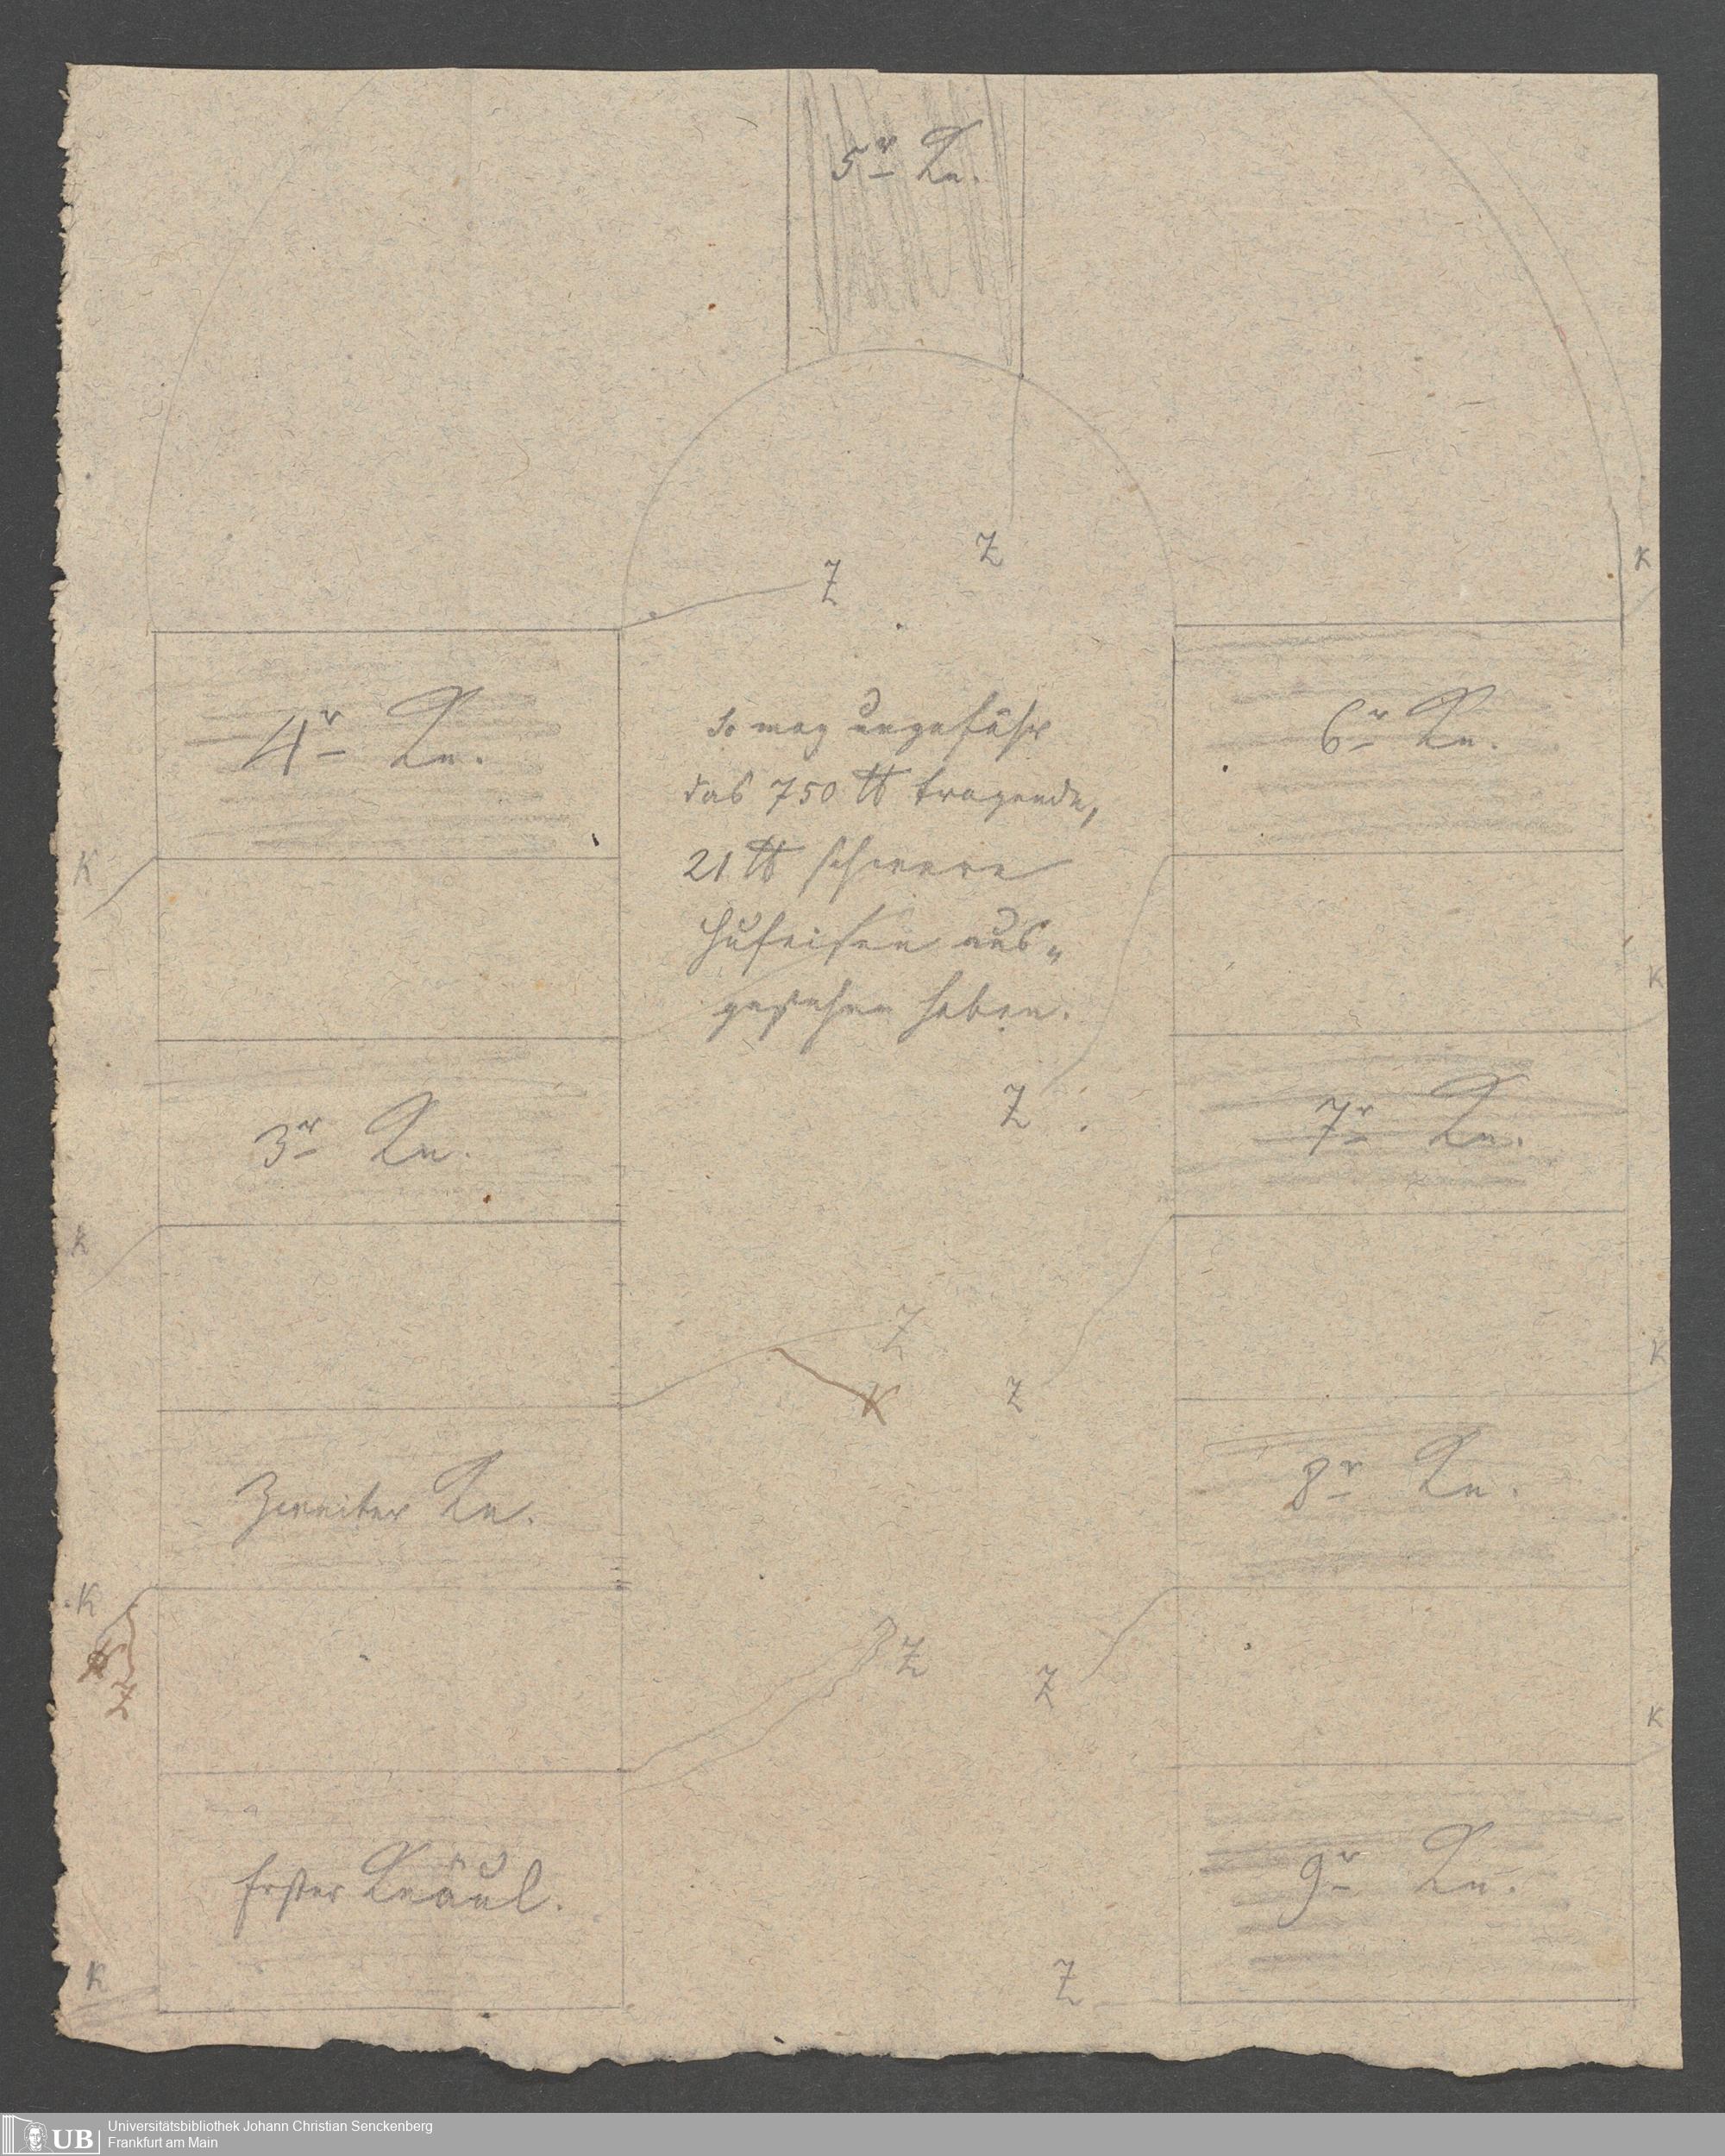 5r Kn.
Z
Z
K
4r Kn.
So mag ungefähr
das 750 ℔ tragende,
21 ℔ schwere
Hufeisen aus„
gesehen haben.
6r Kn.
K
K
Z
3r Kn.
7r Kn.
K
Z
K
Z
K
Zweiter Kn.
8r Kn.
K
Z
Z
Z
K
Erster Knäul.
9r Kn.
K
Z
Universitätsbibliothek Johann Christian Senckenberg
Frankfurt am Main
UB